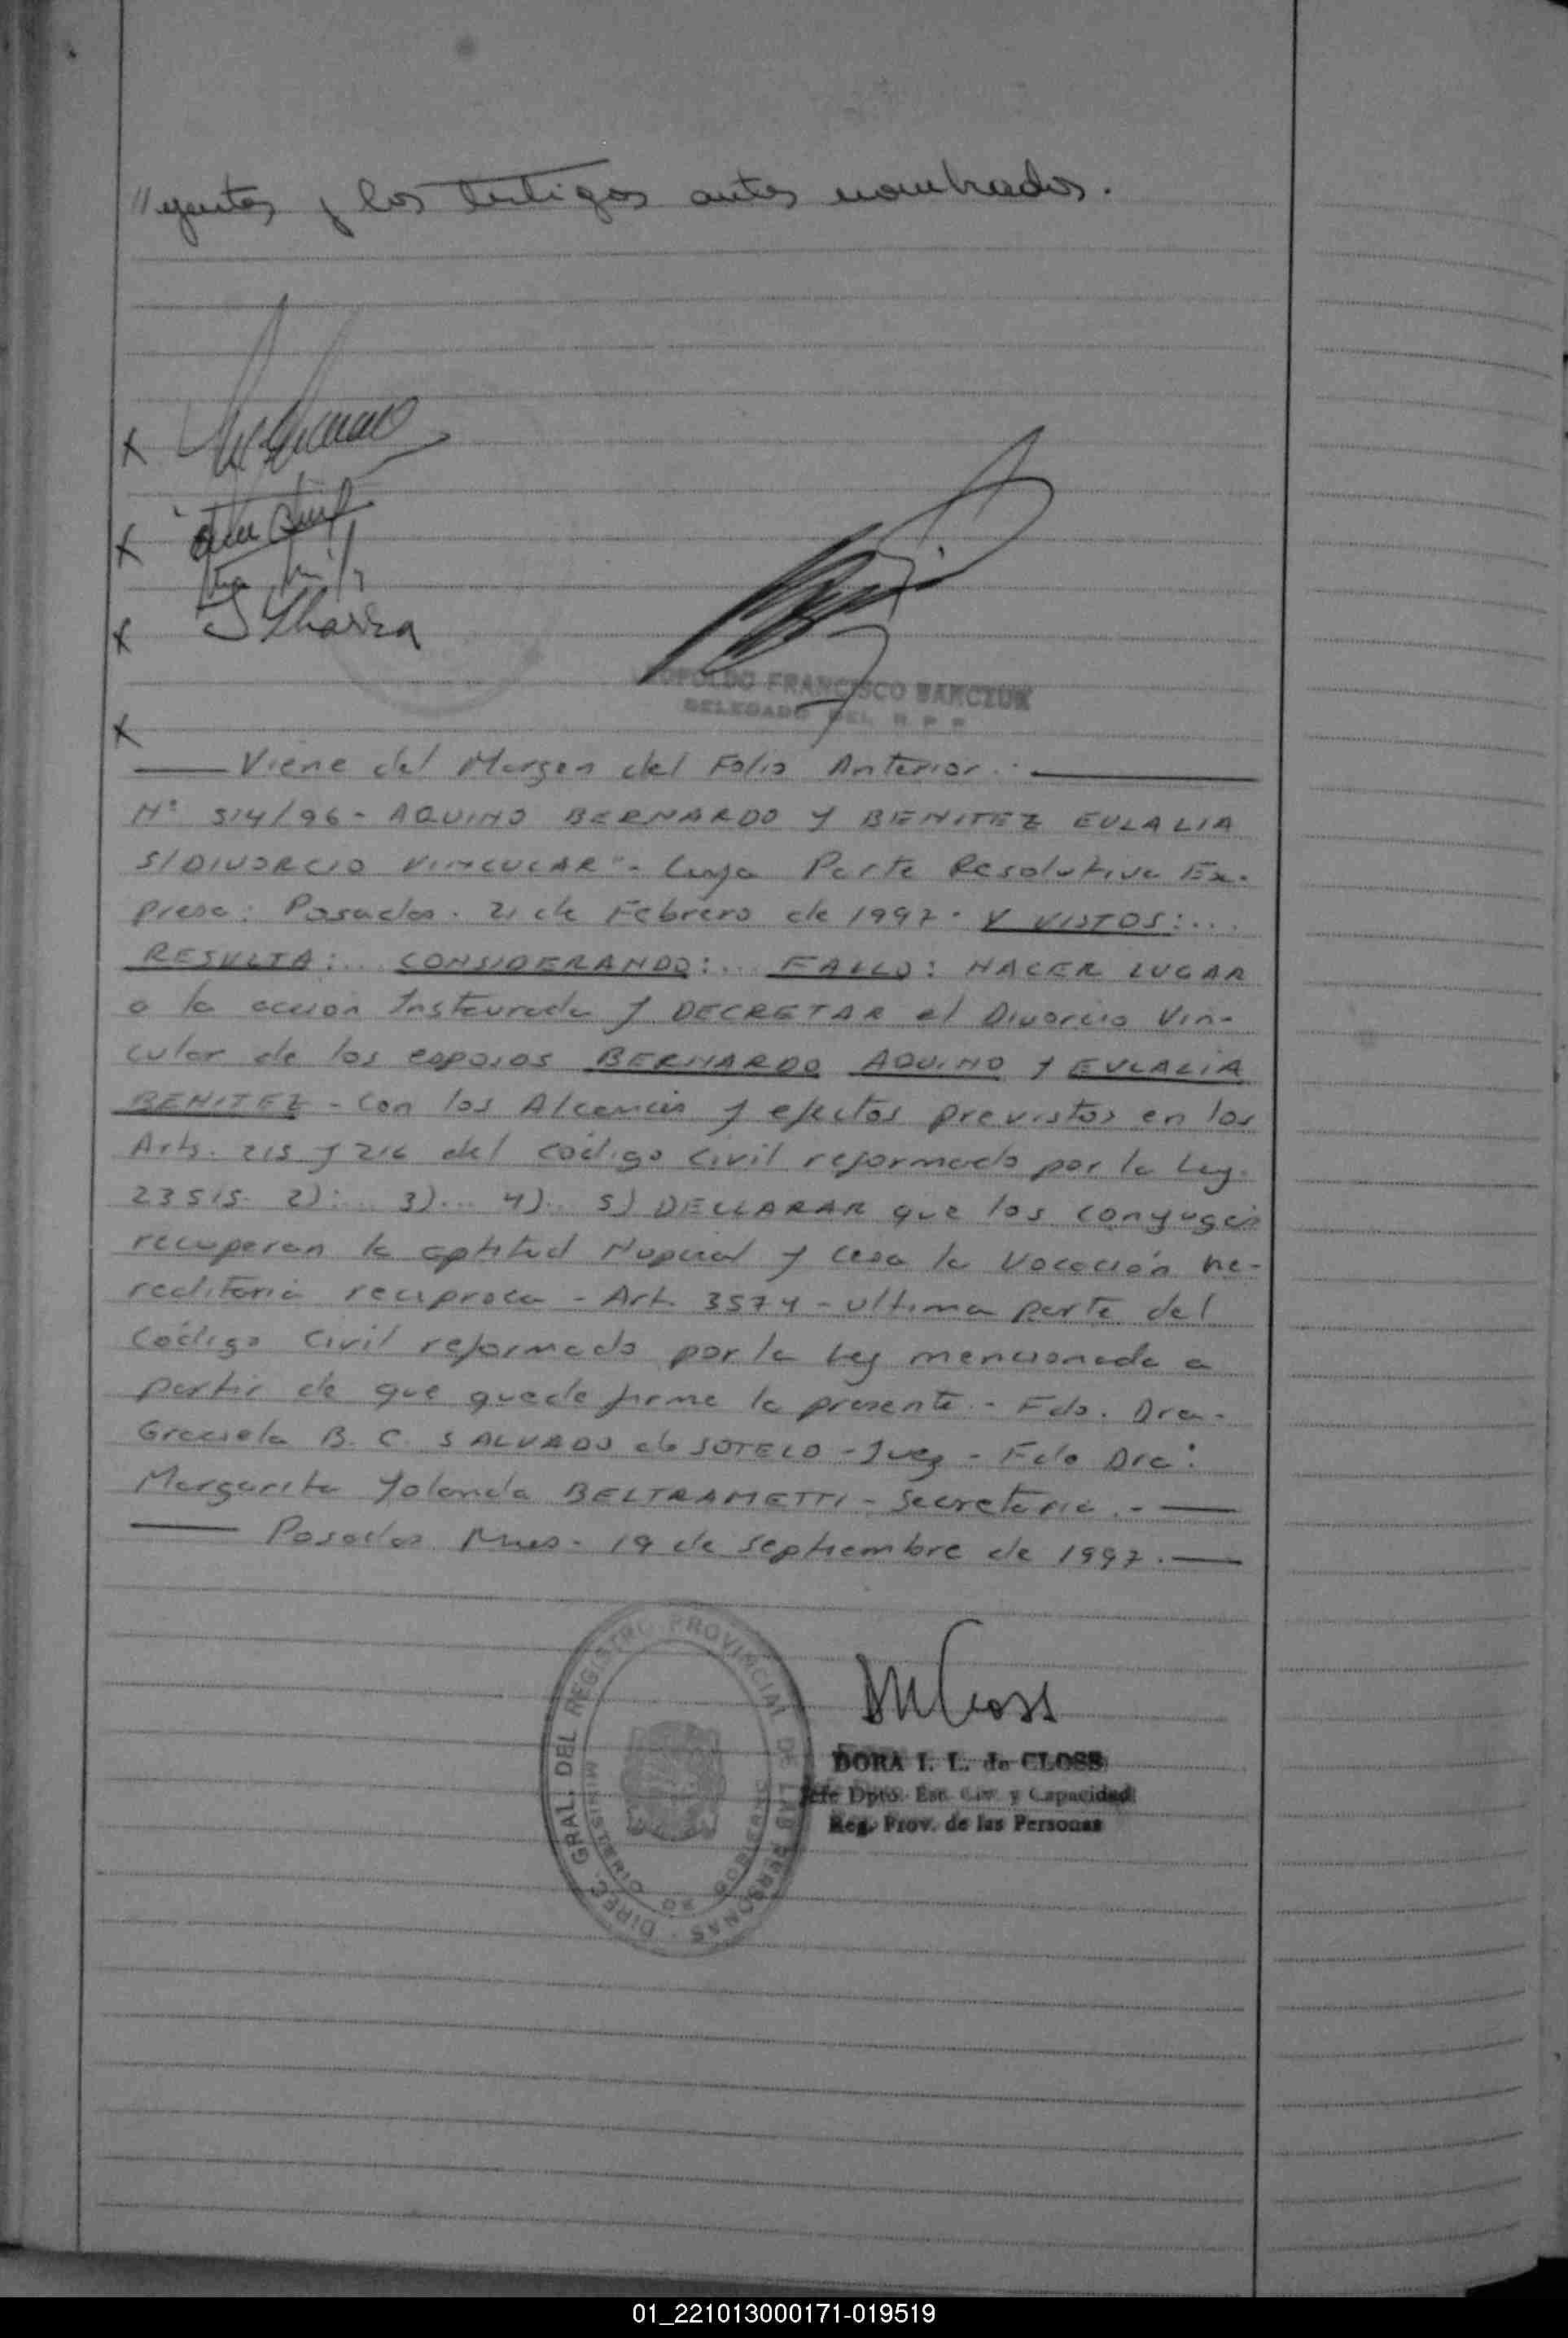 "yentes y los testigos antes nombrados.
X
X
X S Ybarra
LEOPOLDO FRANCISCO
DELEGADO DEL R P P
X
Viene del Margen del Folio Anterior.
Nº 514/96 - AQUINO BERNARDO Y BENITEZ EULALIA
S/DIVORCIO VINCULAR" - Cuya Parte Resolutiva Ex-
presa: Posadas. 21 de Febrero de 1997. Y VISTOS:...
RESULTA:... CONSIDERANDO:... FALLO: HACER LUGAR
a la accion Instaurada y DECRETAR el Divorcio Vin-
cular de los esposos BERNARDO AQUINO Y EULALIA
BENITEZ - Con los Alcances y efectos previstos en los
Arts. 215 y 216 del código civil reformado por la Ley.
23515. 2):... 3)... 4)... 5) DECLARAR que los conyuges
recuperan la aptitud Nupcial y cesa la Vocación he-
reditaria reciproca - Art. 3574 - ultima parte del
Código Civil reformado por la Ley mencionada a
partir de que quede firme la presente. - Fdo. Dra.
Graciela B. C. SALVADO de SOTELO - Juez - Fdo Dra:
Margarita Yolanda BELTRAMETTI - Secretaria. -
Posadas Mnes. 19 de septiembre de 1997.
DIREC. GRAL. DEL REGISTRO PROVINCIAL DE LAS PERSONAS
MINISTERIO DE GOBIERNO
DORA I. L. de CLOSS
Jefe Dpto. Est. Civ. y Capacidad
Reg. Prov. de las Personas
01_221013000171-019519